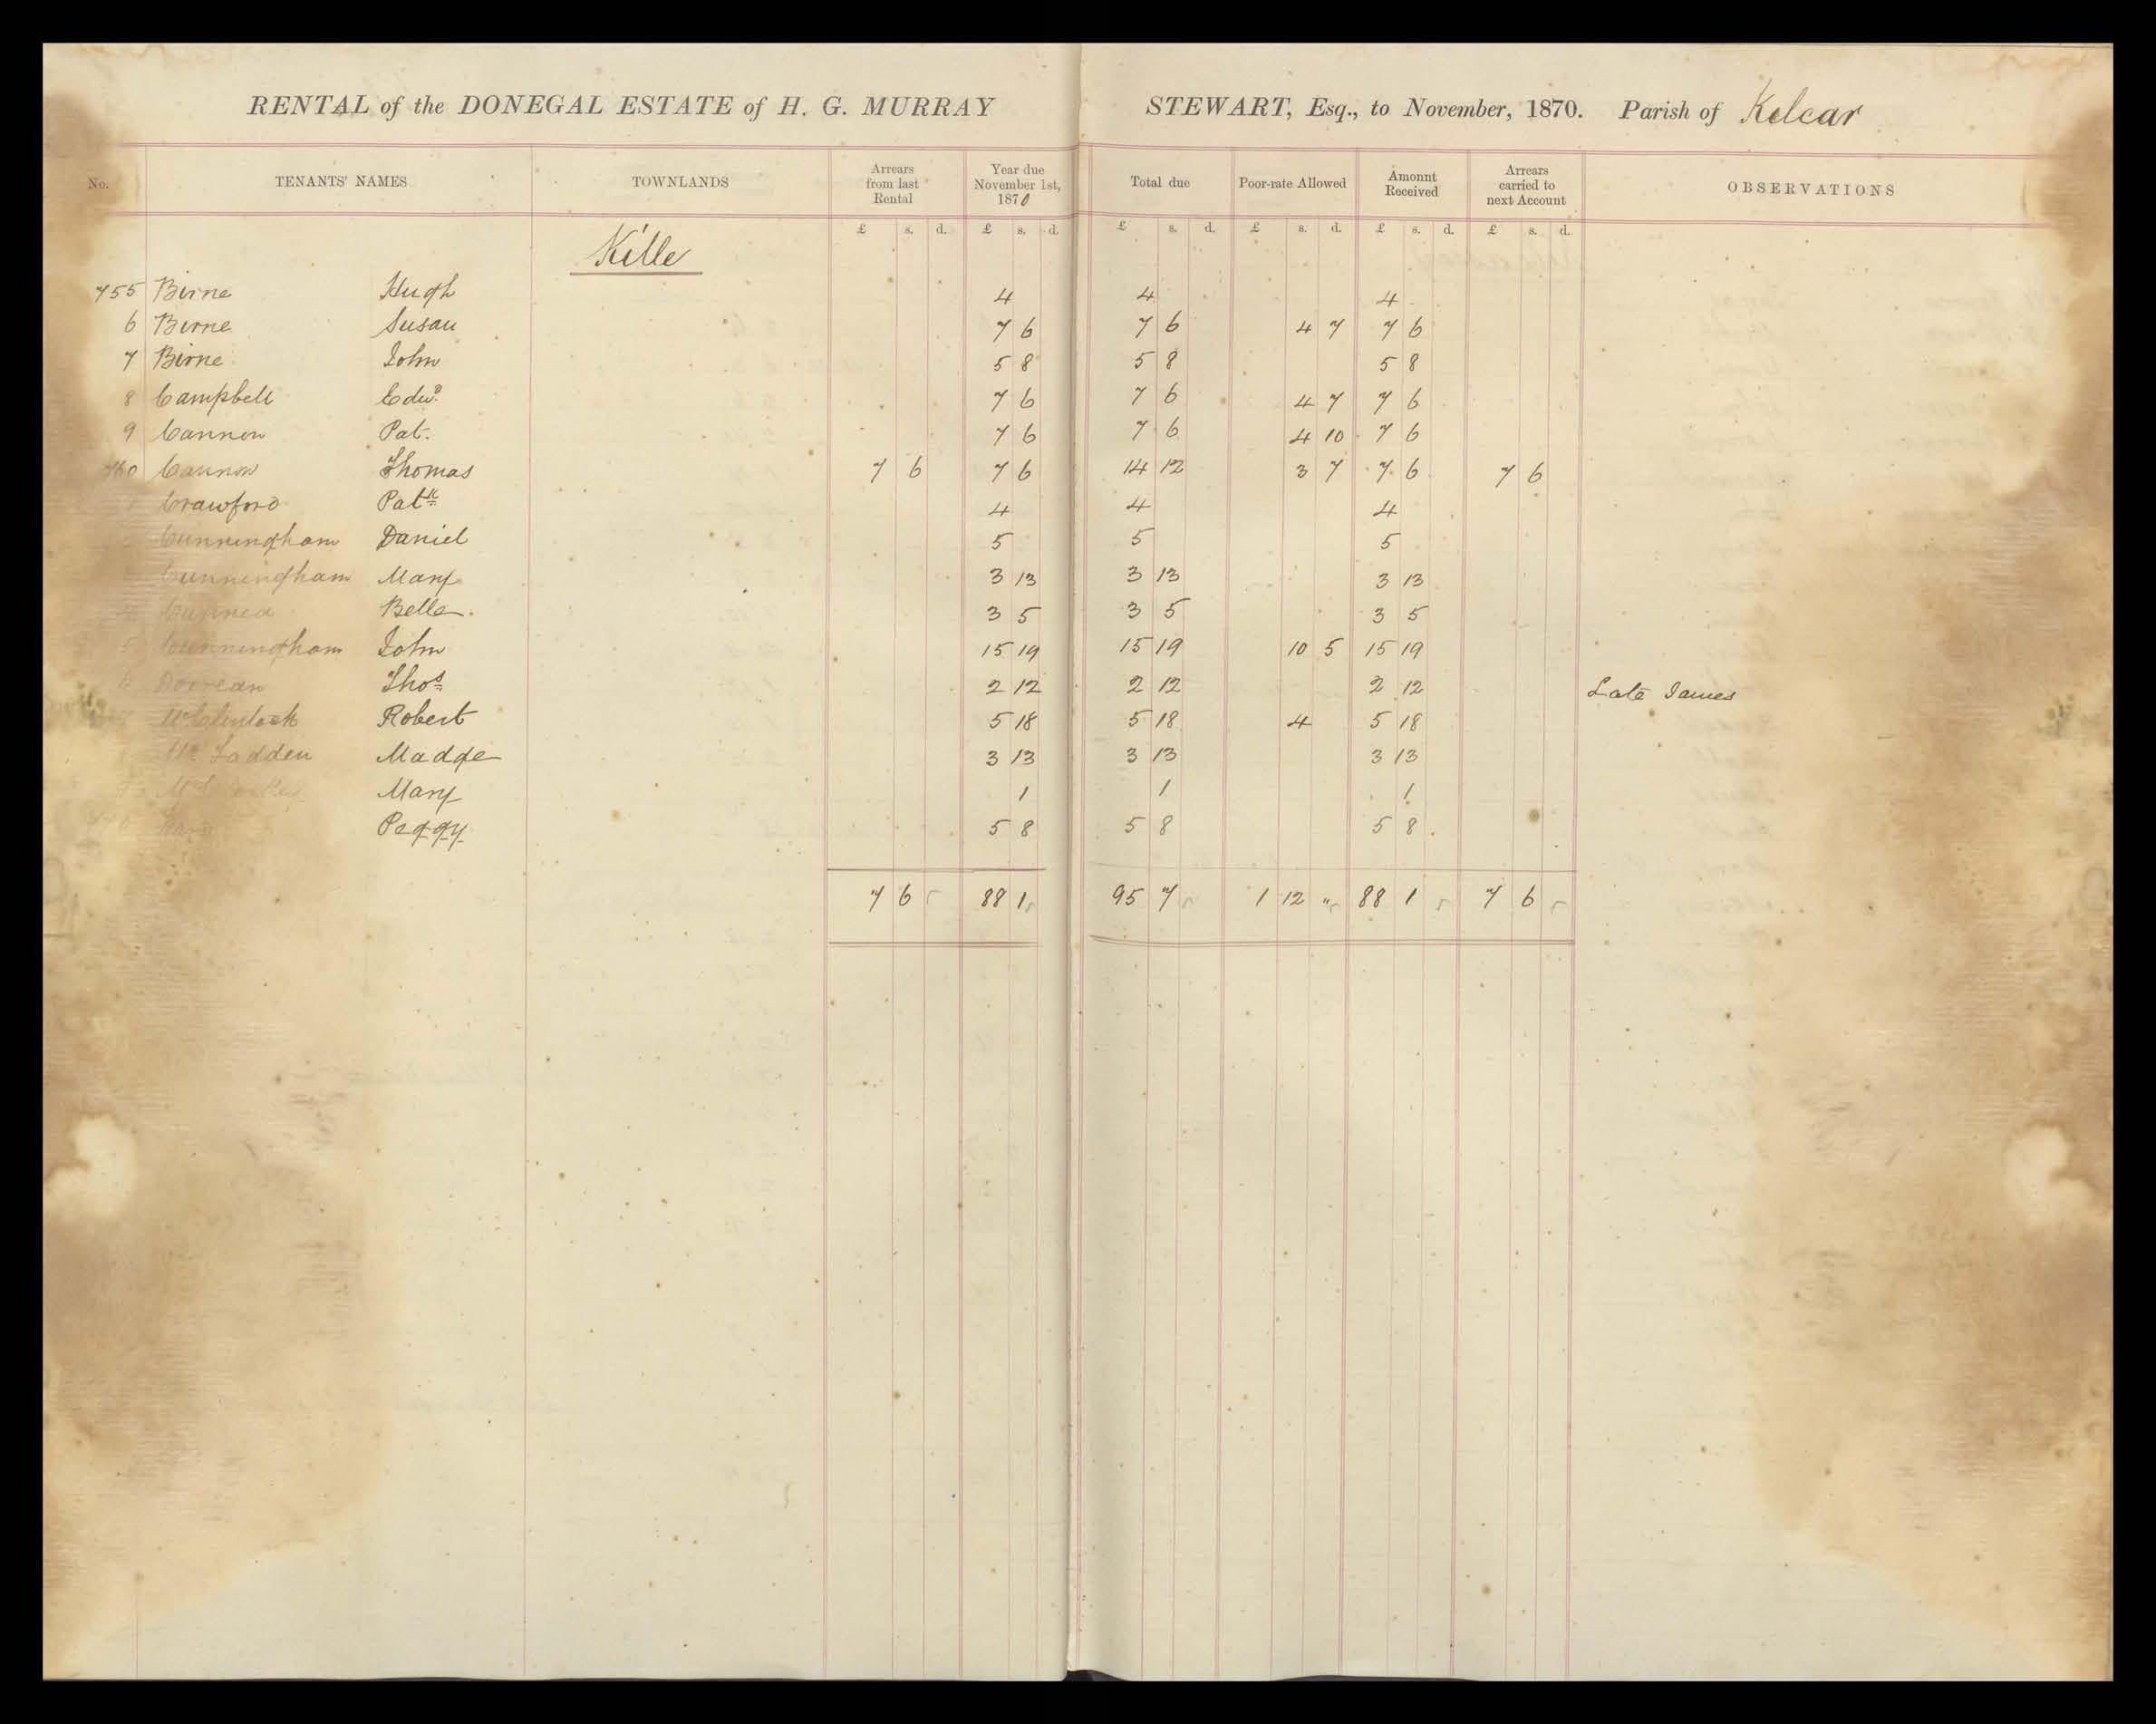 RENTAL of the DONEGAL ESTATE of H. G. MURRAY STEWART, Esq., to November, 1870. Parish of Kilcar
No. TENANTS' NAMES TOWNLANDS Arrears from last Rental Year due November 1st, 1870 Total due Poor-rate Allowed Amount Received Arrears carried to next Account OBSERVATIONS
£ s. d. £ s. d. £ s. d. £ s. d. £ s. d. £ s. d.
Kille
755 Birne Hugh 4 4 4
6 Birne Susan 7 6 7 6 4 7 7 6
7 Birne John 5 8 5 8 5 8
8 Campbell Edwd. 7 6 7 6 4 7 7 6
9 Cannon Pat. 7 6 7 6 4 10 7 6
760 Cannon Thomas 7 6 7 6 14 12 3 7 7 6 7 6
Crawford Patk 4 4 4
Cunningham Daniel 5 5 5
Cunningham Mary 3 13 3 13 3 13
Bella 3 5 3 5 3 5
5 Cunningham John 15 19 15 19 10 5 15 19
Thos 2 12 2 12 2 12 Late James
McClintock Robert 5 18 5 18 4 5 18
Mc Fadden Madge 3 13 3 13 3 13
Mary 1 1 1
Peggy 5 8 5 8 5 8
7 6 88 1 95 7 1 12 " 88 1 7 6